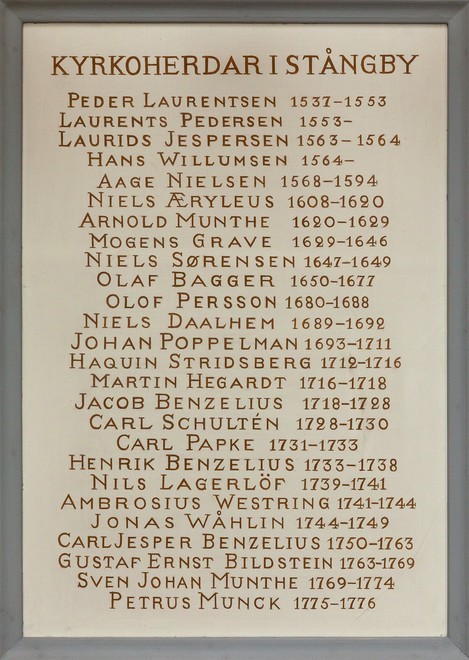 KYRKOHERDAR I STÅNGBY
PEDER LAURENTSEN 1537–1553
LAURENTS PEDERSEN 1553–
LAURIDS JESPERSEN 1563–1564
HANS WILLUMSEN 1564–
AAGE NIELSEN 1568–1594
NIELS ÆRYLEUS 1608–1620
ARNOLD MUNTHE 1620–1629
MOGENS GRAVE 1629–1646
NIELS SØRENSEN 1647–1649
OLAF BAGGER 1650–1677
OLOF PERSSON 1680–1688
NIELS DAALHEM 1689–1692
JOHAN POPPELMAN 1693–1711
HAQUIN STRIDSBERG 1712–1716
MARTIN HEGARDT 1716–1718
JACOB BENZELIUS 1718–1728
CARL SCHULTÉN 1728–1730
CARL PAPKE 1731–1733
HENRIK BENZELIUS 1733–1738
NILS LAGERLÖF 1739–1741
AMBROSIUS WESTRING 1741–1744
JONAS WÅHLIN 1744–1749
CARL JESPER BENZELIUS 1750–1763
GUSTAF ERNST BILDSTEIN 1763–1769
SVEN JOHAN MUNTHE 1769–1774
PETRUS MUNCK 1775–1776